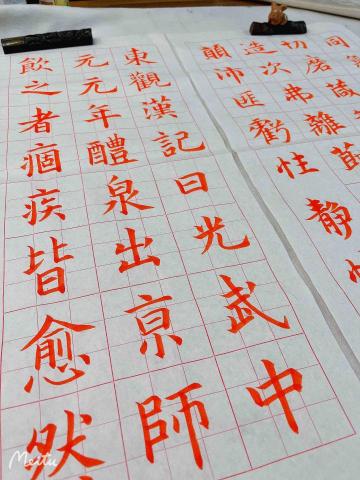 同
切磨箴
造次弗離
顛沛匪虧性靜
東觀漢記曰光武中
元元年醴泉出京師
飲之者痼疾皆愈然
Meitu